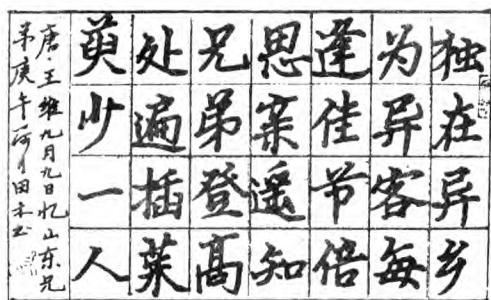 独在异乡
为异客每
逢佳节倍
思亲遥知
兄弟登高
处遍插茱
萸少一人
唐·王维九月九日忆山东兄
弟庚午荷月田禾书